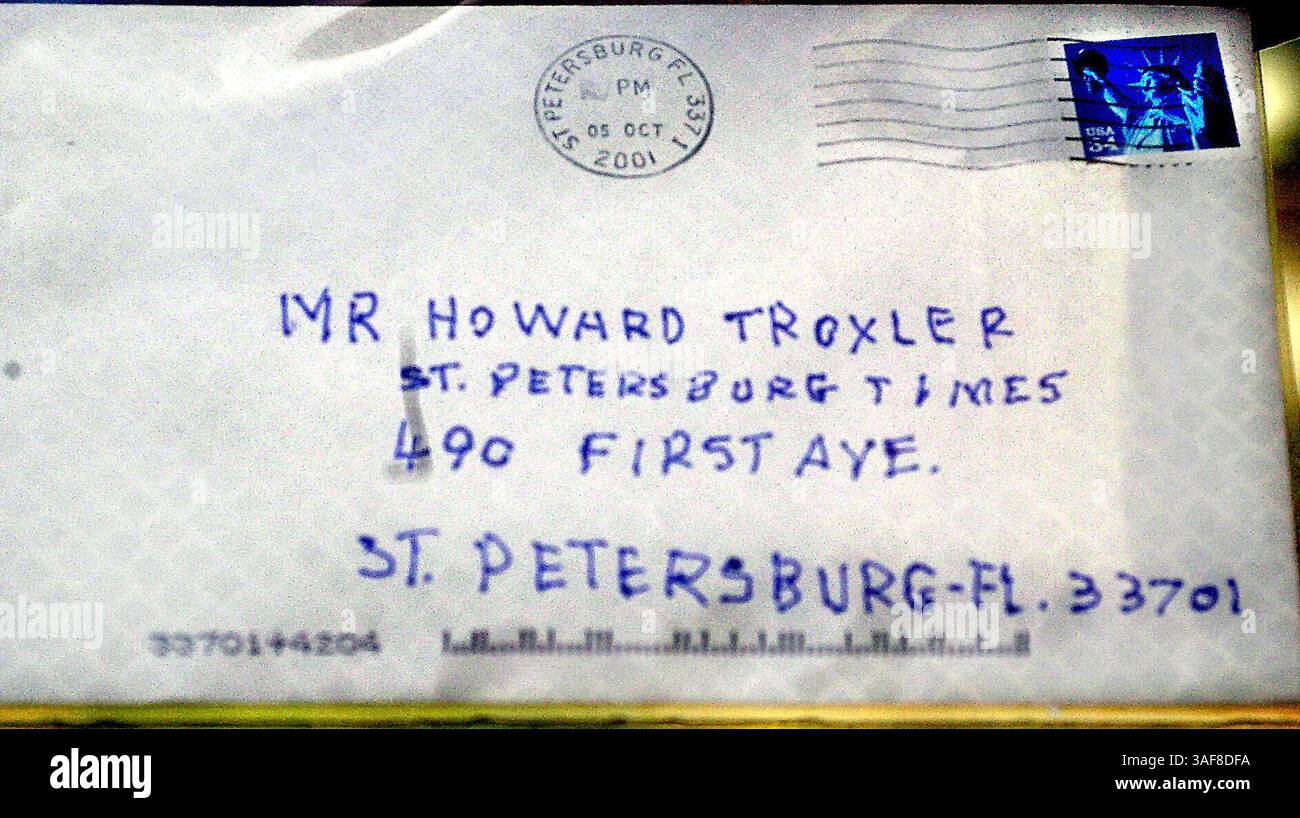 ST PETERSBURG FL 3371
PM
05 OCT
2001
USA
34
MR HOWARD TROXLER
ST. PETERSBURG TIMES
490 FIRST AVE.
ST. PETERSBURG-FL. 33701
33701+4204
alamy
alamy
alamy
alamy
alamy
a
a
a
a
alamy
Image ID: 3AF8DFA
www.alamy.com